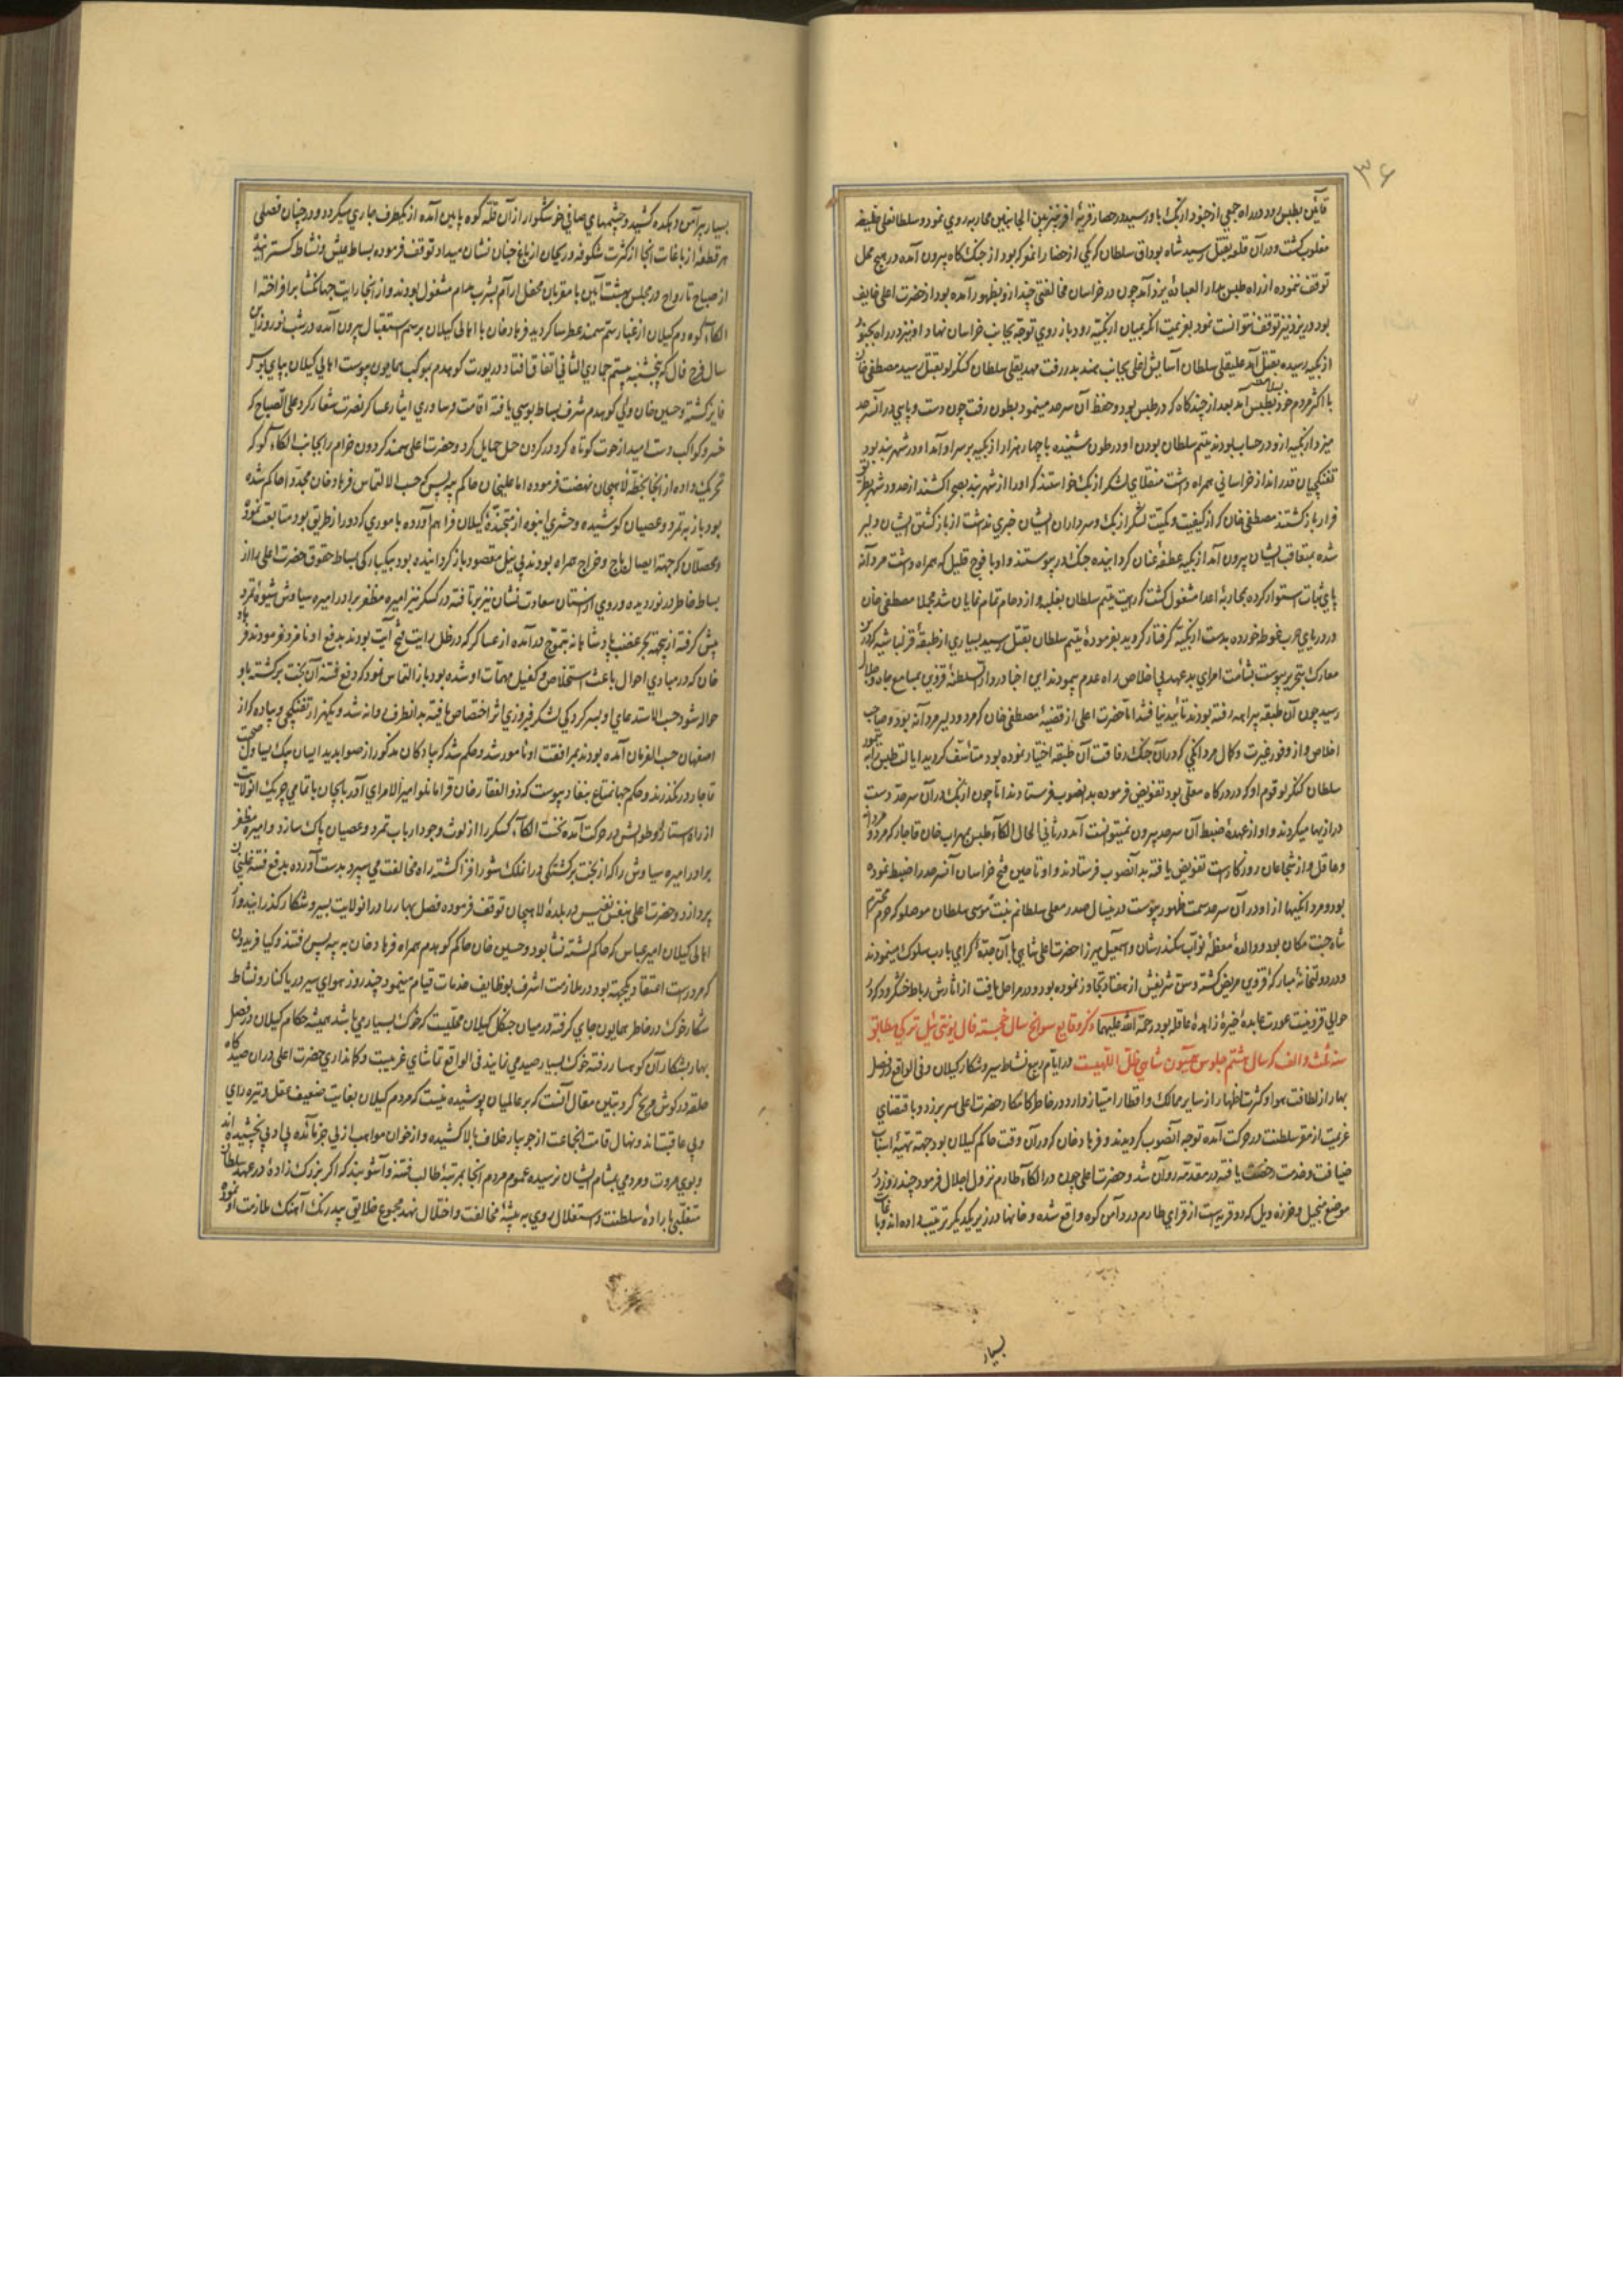 ۳۶
قاین بطبس رود در راه جمعی از جنود ازبک باو رسید در حصار قریه افریز بین الجانبین محاربه روی نمود و سلطانعلی خلیفه
مغلوب گشت و در آن قلعه بقتل رسید شاه بوداق سلطان که یکی از حضار انمعرکه بود از جنک کاه بیرون آمده در هیچ محل
توقف ننموده از راه طبس بدار العباده یزد آمد چون در خراسان مخالفتی چند ازو بظهور آمده بود از حضرت اعلی خایف
بود در یزد نیز توقف نتوانست نمود بعزیمت انکه بمیان ازبکیه رود باز روی توجه بجانب خراسان نهاد و او نیز در راه بجنود
ازبکیه رسیده بقتل آمد علیقلی سلطان آسایش اغلی بجانب هند بدر رفت مهدیقلی سلطان کنکرلو بقتل رسید مصطفی خان
با اکثر مردم خود بطبس آمد بعد از چند کاه که در طبس بود و حفظ آن سرحد مینمود بطون رفت چون دست و پایی در آنسرحد
میزد ازبکیه ازو در حساب بودند یتیم سلطان بودن او در طون شنیده با چهار هزار ازبکیه بر سر او آمد او در شهر بند بود
تفنکچیان قدر انداز خراسانی همراه داشت منقلای لشکر ازبک خواستند که او را از شهر بند بصحرا کشند از حدود شهر بطریق
فرار باز گشتند مصطفی خان که از کیفیت و کمیت لشکر ازبک و سرداران ایشان خبری نداشت از باز گشتن ایشان دلیر
شده بتعاقب ایشان بیرون آمد ازبکیه عطفه عنان کردانیده جنک در پیوستند و او با فوج قلیل که همراه داشت مردانه
پای ثبات استوار کرده بمحاربه اعدا مشغول گشت کرهت یتیم سلطان بغلبه و ازدحام تمام نمایان شد مجملا مصطفی خان
در دریای حرب غوطه خورده بدست ازبکیه گرفتار گردید بفرموده یتیم سلطان بقتل رسید بسیاری از طبقه قزلباشیه که درین
معارک بتحریر پیوست بشامت امرای بد عهد بی اخلاص راه عدم پیمودند این اخبار در دار السلطنه قزوین بمسامع جاه و جلال
رسید چون آن طبقه پیراهه رفته بودند تایید نیافتند اما حضرت اعلی از قضیه مصطفی خان که مرد دلیر مردانه بود و صاحب
اخلاص و از وفور غیرت و کمال مردانکی که در آن جنک رفاقت آن طبقه اختیار نموده بود متاسف کردید ایالت طبس را به تیمور
سلطان کنکرلو قوم او که در درکاه معلی بود تفویض فرموده بدانصوب فرستادند اما چون ازبک در آن سرحد دست
درازیها میکردند و او از عهده ضبط آن سرحد بیرون نمیتوانست آمد در ثانی الحال الکاء طبس بمهراب خان قاجار که مرد مردانه
و عاقل و از شجاعان روزکار است تفویض یافته بدانصوب فرستادند و او تا حین فتح خراسان آنسرحد را ضبط نموده
بود و مردانکیها ازو در آن سرحد سمت ظهور پیوست درین سال صدر معلی سلطانم بنت موسی سلطان موصلو که حرم محترم
شاه جنت مکان بود و والده معظمه نواب سکندر شان و اسمعیل میرزا حضرت اعلی شاهی بآن جده کرامی بادب سلوک مینمودند
و در دولتخانه مبارکه قزوین مریض گشته و سن شریفش از هفتاد تجاوز نموده بود و در مراحل یافت از آثارش رباط خشکرود که در
حوالی قزوینست عورت عابده خیره زاهده عاقله بود رحمة الله علیهما ذکر وقایع سوانح سال خجسته فال یونتی ئیل ترکی مطابق
سنه ثلث و الف که سال هشتم جلوس همیون شاهی ظل اللهیست در ایام ربیع نشاط سیر و شکار کیلان و فی الواقع در فصل
بهار از لطافت هوا و کثرت انهار از سایر ممالک و اقطار امتیاز دارد در خاطر کامکار حضرت اعلی سر بر زده و باقتضای
عزیمت از مقر سلطنت در حرکت آمده توجه آنصوب کردیدند و فرهاد خان که در آن وقت حاکم کیلان بود جهت تهیه اسباب
ضیافت و خدمت رخصت یافته در مقدمه روان شد و حضرت اعلی چون در الکاء طارم نزول اجلال فرمود چند روز در
موضع منجیل و خرزه ویل که دو قریه است از قرای طارم در دامن کوه واقع شده و خانها در زیر یکدیکر ترتیب داده اند و باغات
بسیار
بسیار پیرامن دهکده کشیده و چشمهای صافی خوشکوار از آن قله کوه پایین آمده از یکطرف جاری میکردد و در چنان فصلی
هر قطعه از باغات آنجا از کثرت شکوفه و ریحان از باغ جنان نشان میداد توقف فرموده بساط عیش و نشاط کسترانیده
از صباح تا رواح در مجلس بهشت آیین با مقربان محفل ارم آیین بشرب مدام مشغول بودند و از انجا رایت جهانکشا برافراخته
الکاء کوهدم کیلان از غبار سم سمند عطرسا کردید فرهاد خان با اهالی کیلان برسم استقبال بیرون آمده در شب نوروز این
سال فرخ فال که پنجشنبه بیستم جمادی الثانی اتفاق افتاد در یورت کوهدم بموکب همایون پیوست اهالی کیلان بپای بوس
فایز گشته و حسین خان والی کوهدم شرف بساط بوسی یافته اقامت و ساوری ایثار عساکر نصرت شعار کرد علی الصباح که
خسرو کواکب دست امید از حوت کوتاه کرد در کردن حمل حمایل کرد و حضرت اعلی سمند کردون خرام را بجانب الکاء کوکه
تحریک داده از انجا بخطه لاهیجان نهضت فرموده اما علیخان حاکم بیه پس که حسب الالتماس فرهاد خان مجددا حاکم شده
بود باز به تمرد و عصیان کوشیده و حشری انبوه از متجنده کیلان فراهم آورده باموری که دور از طریق بود متابعت نموده
و محصلان که جهة ایصال باج و خراج همراه بودند بی نیل مقصود باز کردانیده بود بیکبارکی بساط حقوق حضرت اعلی را از
بساط خاطر در نوردیده و روی از آستان سعادت نشان نیز برتافته در کسکر نیز امیره مظفر برادر امیره سیاوش شیوه تمرد
پیش گرفته از بیجهة بحر غضب پادشاهانه بتموج درآمده از عساکر که در ظل رایت فتح آیت بودند بدفع او نامزد فرمودند فرهاد
خان که در مبادی احوال باعث استخلاص و کفیل مهمات او شده بود باز التماس نمود که دفع فتنه آن بخت برگشته باو
حواله شود حسب الاستدعای او بسرکردکی لشکر فیروزی اثر اختصاص یافته بدانطرف روانه شد و یکهزار تفنکچی و پیاده که از
اصفهان حسب الفرمان آمده بودند بمرافقت او مامور شد و حکم شد که پیادکان مذکور از صوابدید ایسان بیک یساول صحبت
قاجار در نکذرند و حکم جهانمطاع بنفاذ پیوست که ذوالفقار خان قرامانلو امیر الامرای آذربایجان با تمامی چریک انولایت
از راه آستارا و طوالش در حرکت آمده نخست الکاء کسکر را از لوث وجود ارباب تمرد و عصیان پاک سازد و امیره مظفر
برادر امیره سیاوش را که از بخت برگشتکی در انملک شورافزا گشته راه مخالفت می سپرد بدست آورده بدفع فتنه علیخان
پردازد و حضرت اعلی بنفس نفیس در بلده لاهیجان توقف فرموده فصل بهار را در انولایت بسیر و شکار گذرانیدند و از
اهالی کیلان امیر عباس که حاکم لشته نشا بود و حسین خان حاکم کوهدم همراه فرهاد خان به بیه پس رفتند و کیا فریدون
که مرد راست اعتقاد و یکجهت بود در ملازمت اشرف بوظایف خدمات قیام مینمود چند روز هوای سیر دریا کنار و نشاط
شکار خوک در خاطر همایون جای گرفته در میان جنکل کیلان محلیست که خوک بسیار می باشد همیشه حکام کیلان در فصل
بهار بشکار آن کوهسار رفته خوک بسیار صید می نمایند فی الواقع تماشای غریبیست و کمانداری حضرت اعلی در آن صیدکاه
حلقه در کوش مریخ کرد تبیین مقال آنست که بر عالمیان پوشیده نیست که مردم کیلان بغایت ضعیف عقل و تیره رای
و بی عاقبت اند و نهال قامت انجماعت از جویبار خلاف بالا کشیده و از خوان مواهب ازلی جز مائده بی ادبی نچشیده اند
و بوی مروت و مردمی بمشام ایشان نرسیده عموم مردم آنجا بمرتبه طالب فتنه و آشوبند که اکر بزرک زاده در عهد سلطان
متغلبی باراده سلطنت و استقلال روی به بیشه مخالفت و اختلال نهد مجموع خلایق بیدرنک آهنک ملازمت او نموده